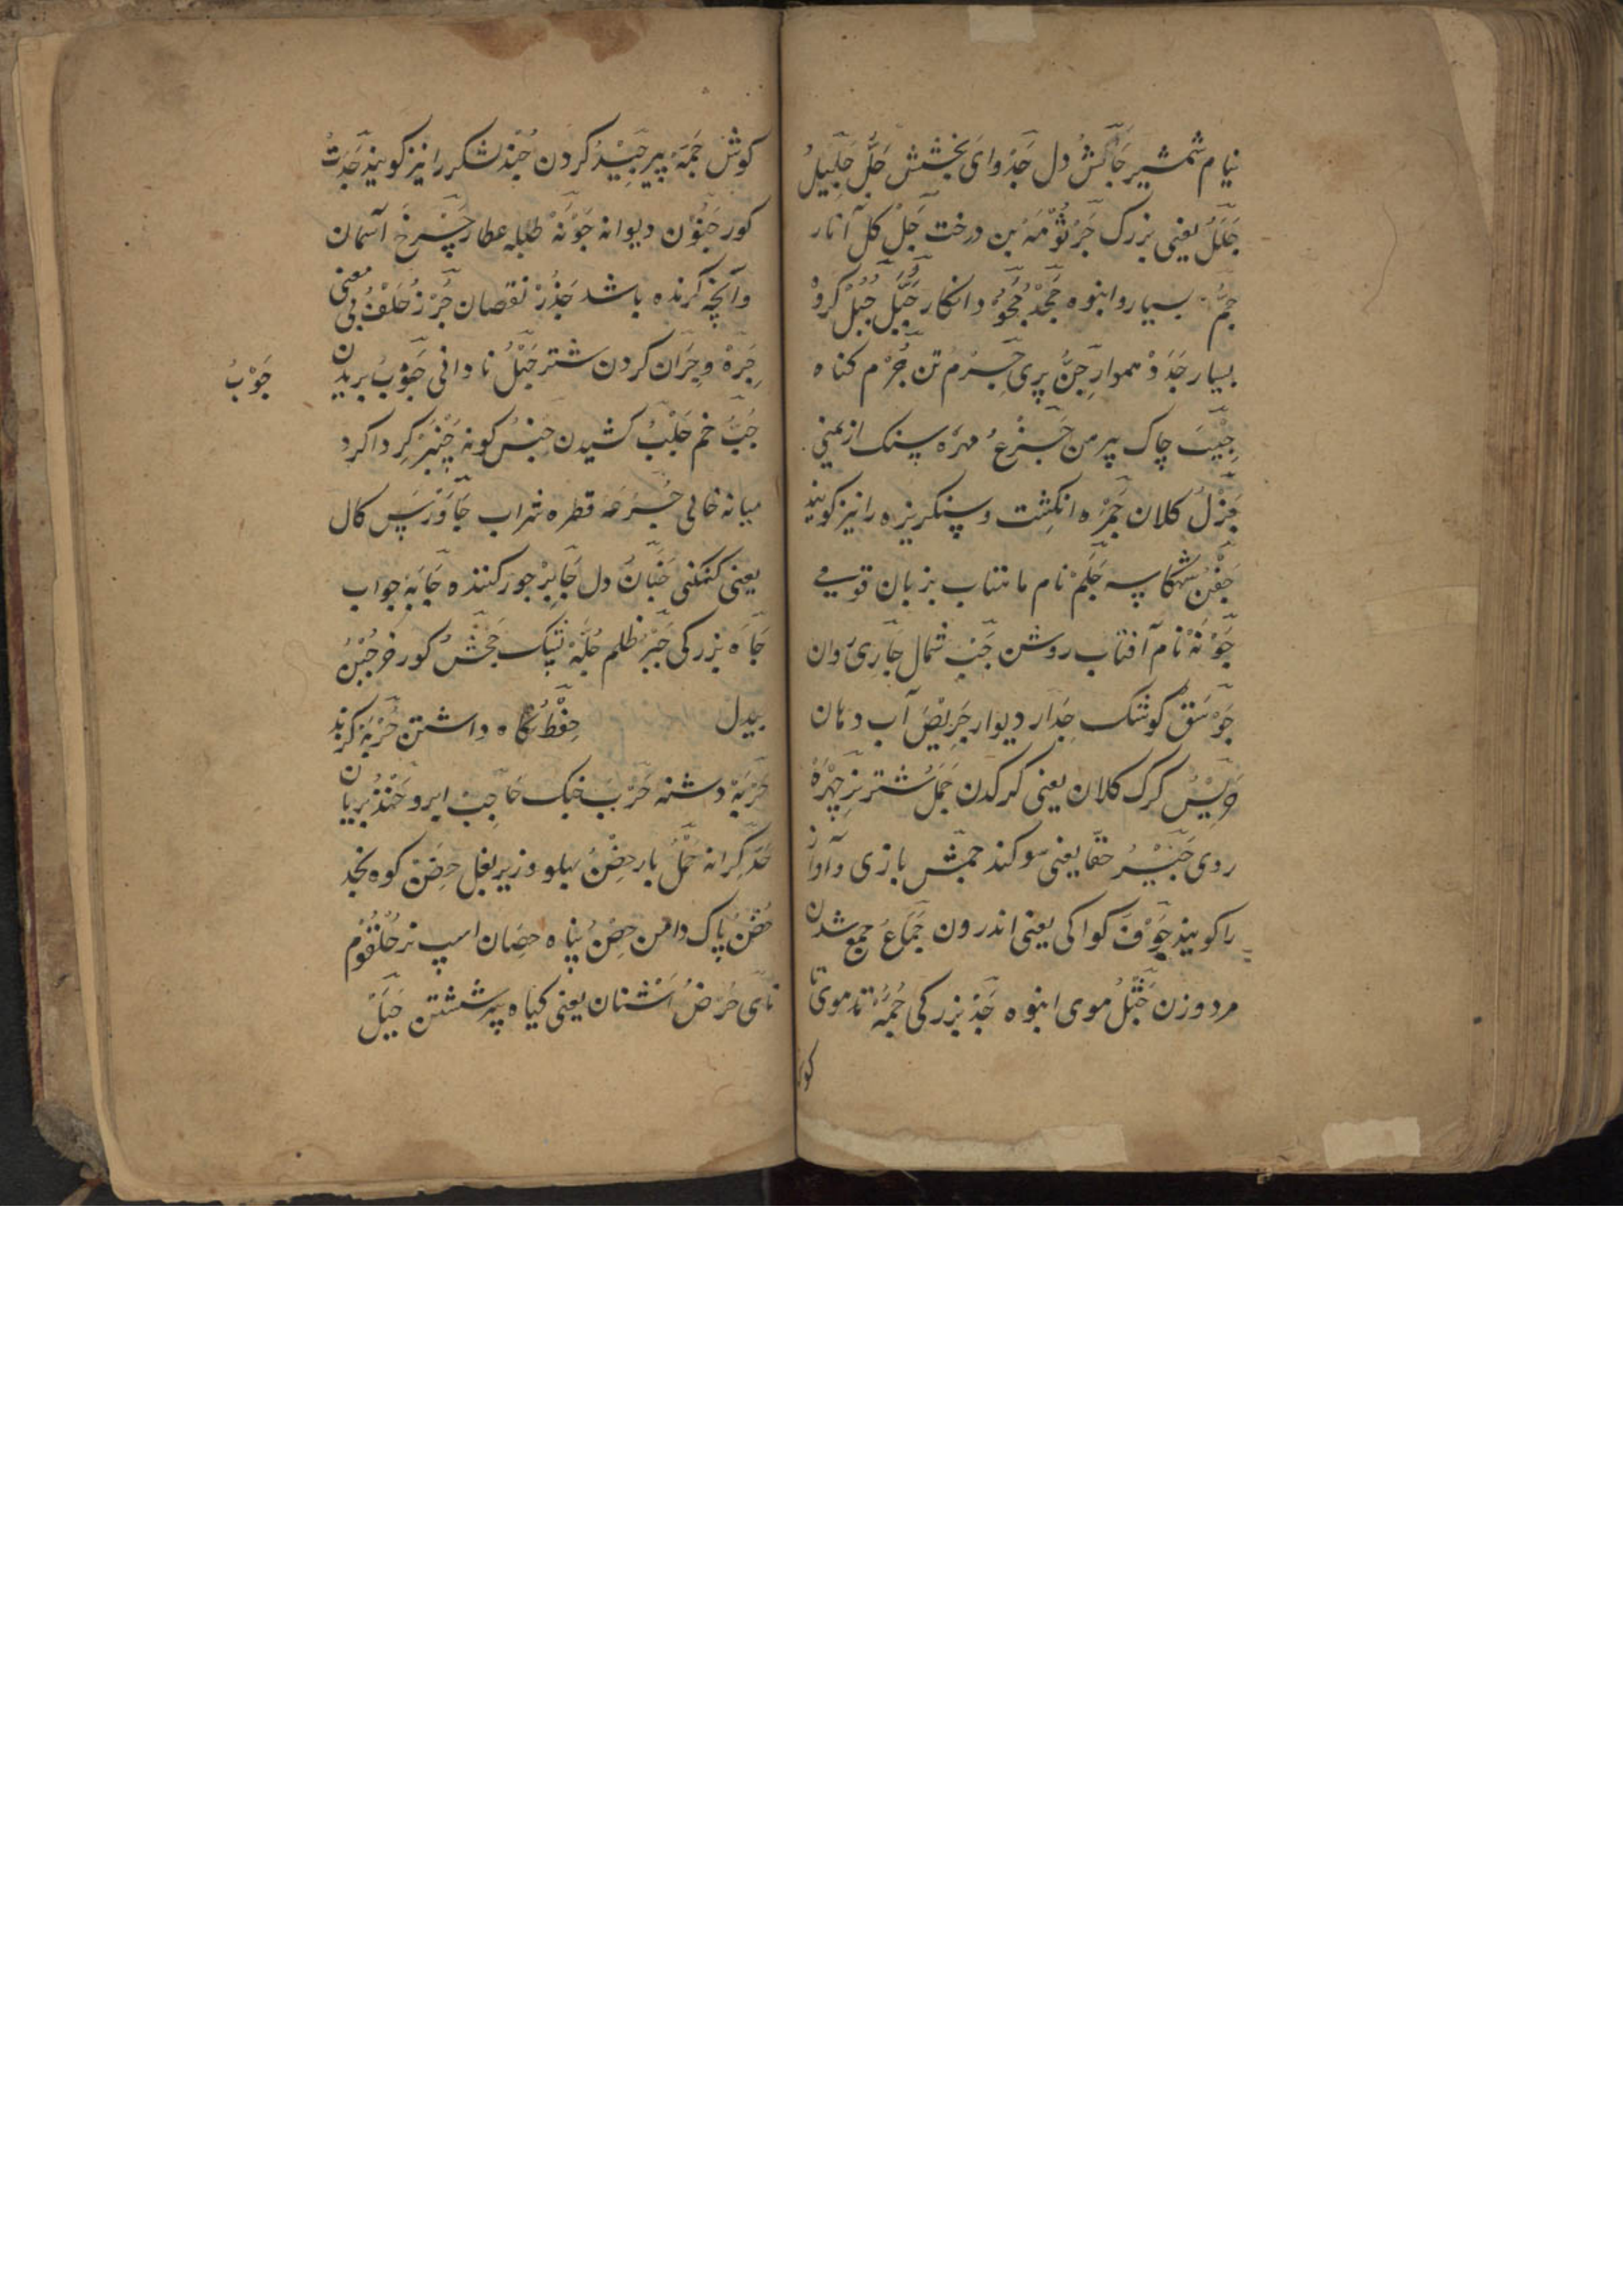 نیام شمشیر جَاْکشُ دل جَدْوای بخشش جَلَّ جَلِیلُ
جَلَلُ یعنی بزرک جُرْثُوْمَهْ بن درخت جُلْ کل انار
جَمٌّ بسیار و انبوه جَحْدْ جُحُوْدْ انکار جِبِلّ جُبُلْ کروْ
بسیار جَدَدْ هموار جِنُّ پری جِسْرْم تن جُرْم کناه
جَیْبَ چاک پیرهن جَزْعُ مهره سنک از یمنی
جَزْلُ کلان جَمْرَه انکِشت و سنکریزه را نیز کویند
جَفْنُ کاسه جَلَمْ نام ماهتاب بزبان قومی
جَوْنَهْ نام آفتاب روشن جَنْب شمال جَارِیْ روان
جَوْسَقْ کوشک جِدَار دیوار جَرِیْضَ آب دهان
کرک کلان یعنی کرکدن جَمَلُ شتر نر چِهْرَهْ
روی جَیْرُ حقا یعنی سوکند جمش بازی و آواز
را کویند جَوْفَ کواکی یعنی اندرون جِمَاعُ جمع شدن
مرد و زن جَثْلُ موی انبوه جَدْ بزرکی جُمَّهْ موی تا
کوش
کوش جَمَّهْ پیر جَیْدُ کردن جُنْد لشکر را نیز کویند جَدَثُ
کور جُنُوْن دیوانه جَوْنَهْ طبله عطار چَرْخَ آسمان
وآنچه کرنده باشد جَذْرْ نقصان جُرْزُ خَلْفُ بی معنی
جِرَهْ و جِرَان کردن شتر جَهْلُ نادانی جَوْبُ بریدن
جَوْبُ
جُبُّ خم جَلْبُ کشیدن جِنْسُ کونه چَنْبَرْ کِرداکرد
میانه خالی جُرْعَهْ قطره شراب جَاوَرْس کال
یعنی کنکنی جَنَانُ دل جَایِرْ جور کننده جَابَهْ جواب
جَاَه بزرکی جَبْرْ ظلم جُلَّهْ تنک جَحْشُ کورخر جُبْنُ
بیدل حِفْظُ نکاه داشتن حُرْبَهْ کزند
حَرْبَهْ دشنه حَرْبَ جنک حَاجِبْ ابرو حَنْذْ بریان
حَدّ کرانه حِمْلُ بار حِضْنُ پهلو و زیر بغل حَضَنْ کوه نجد
حُصْنُ پاک دامن حِصْنُ پناه حِصَان اسپ نر حُلْقُوْم
نای حُرْضُ اُشْنان یعنی کیاه شستن حِیَلْ